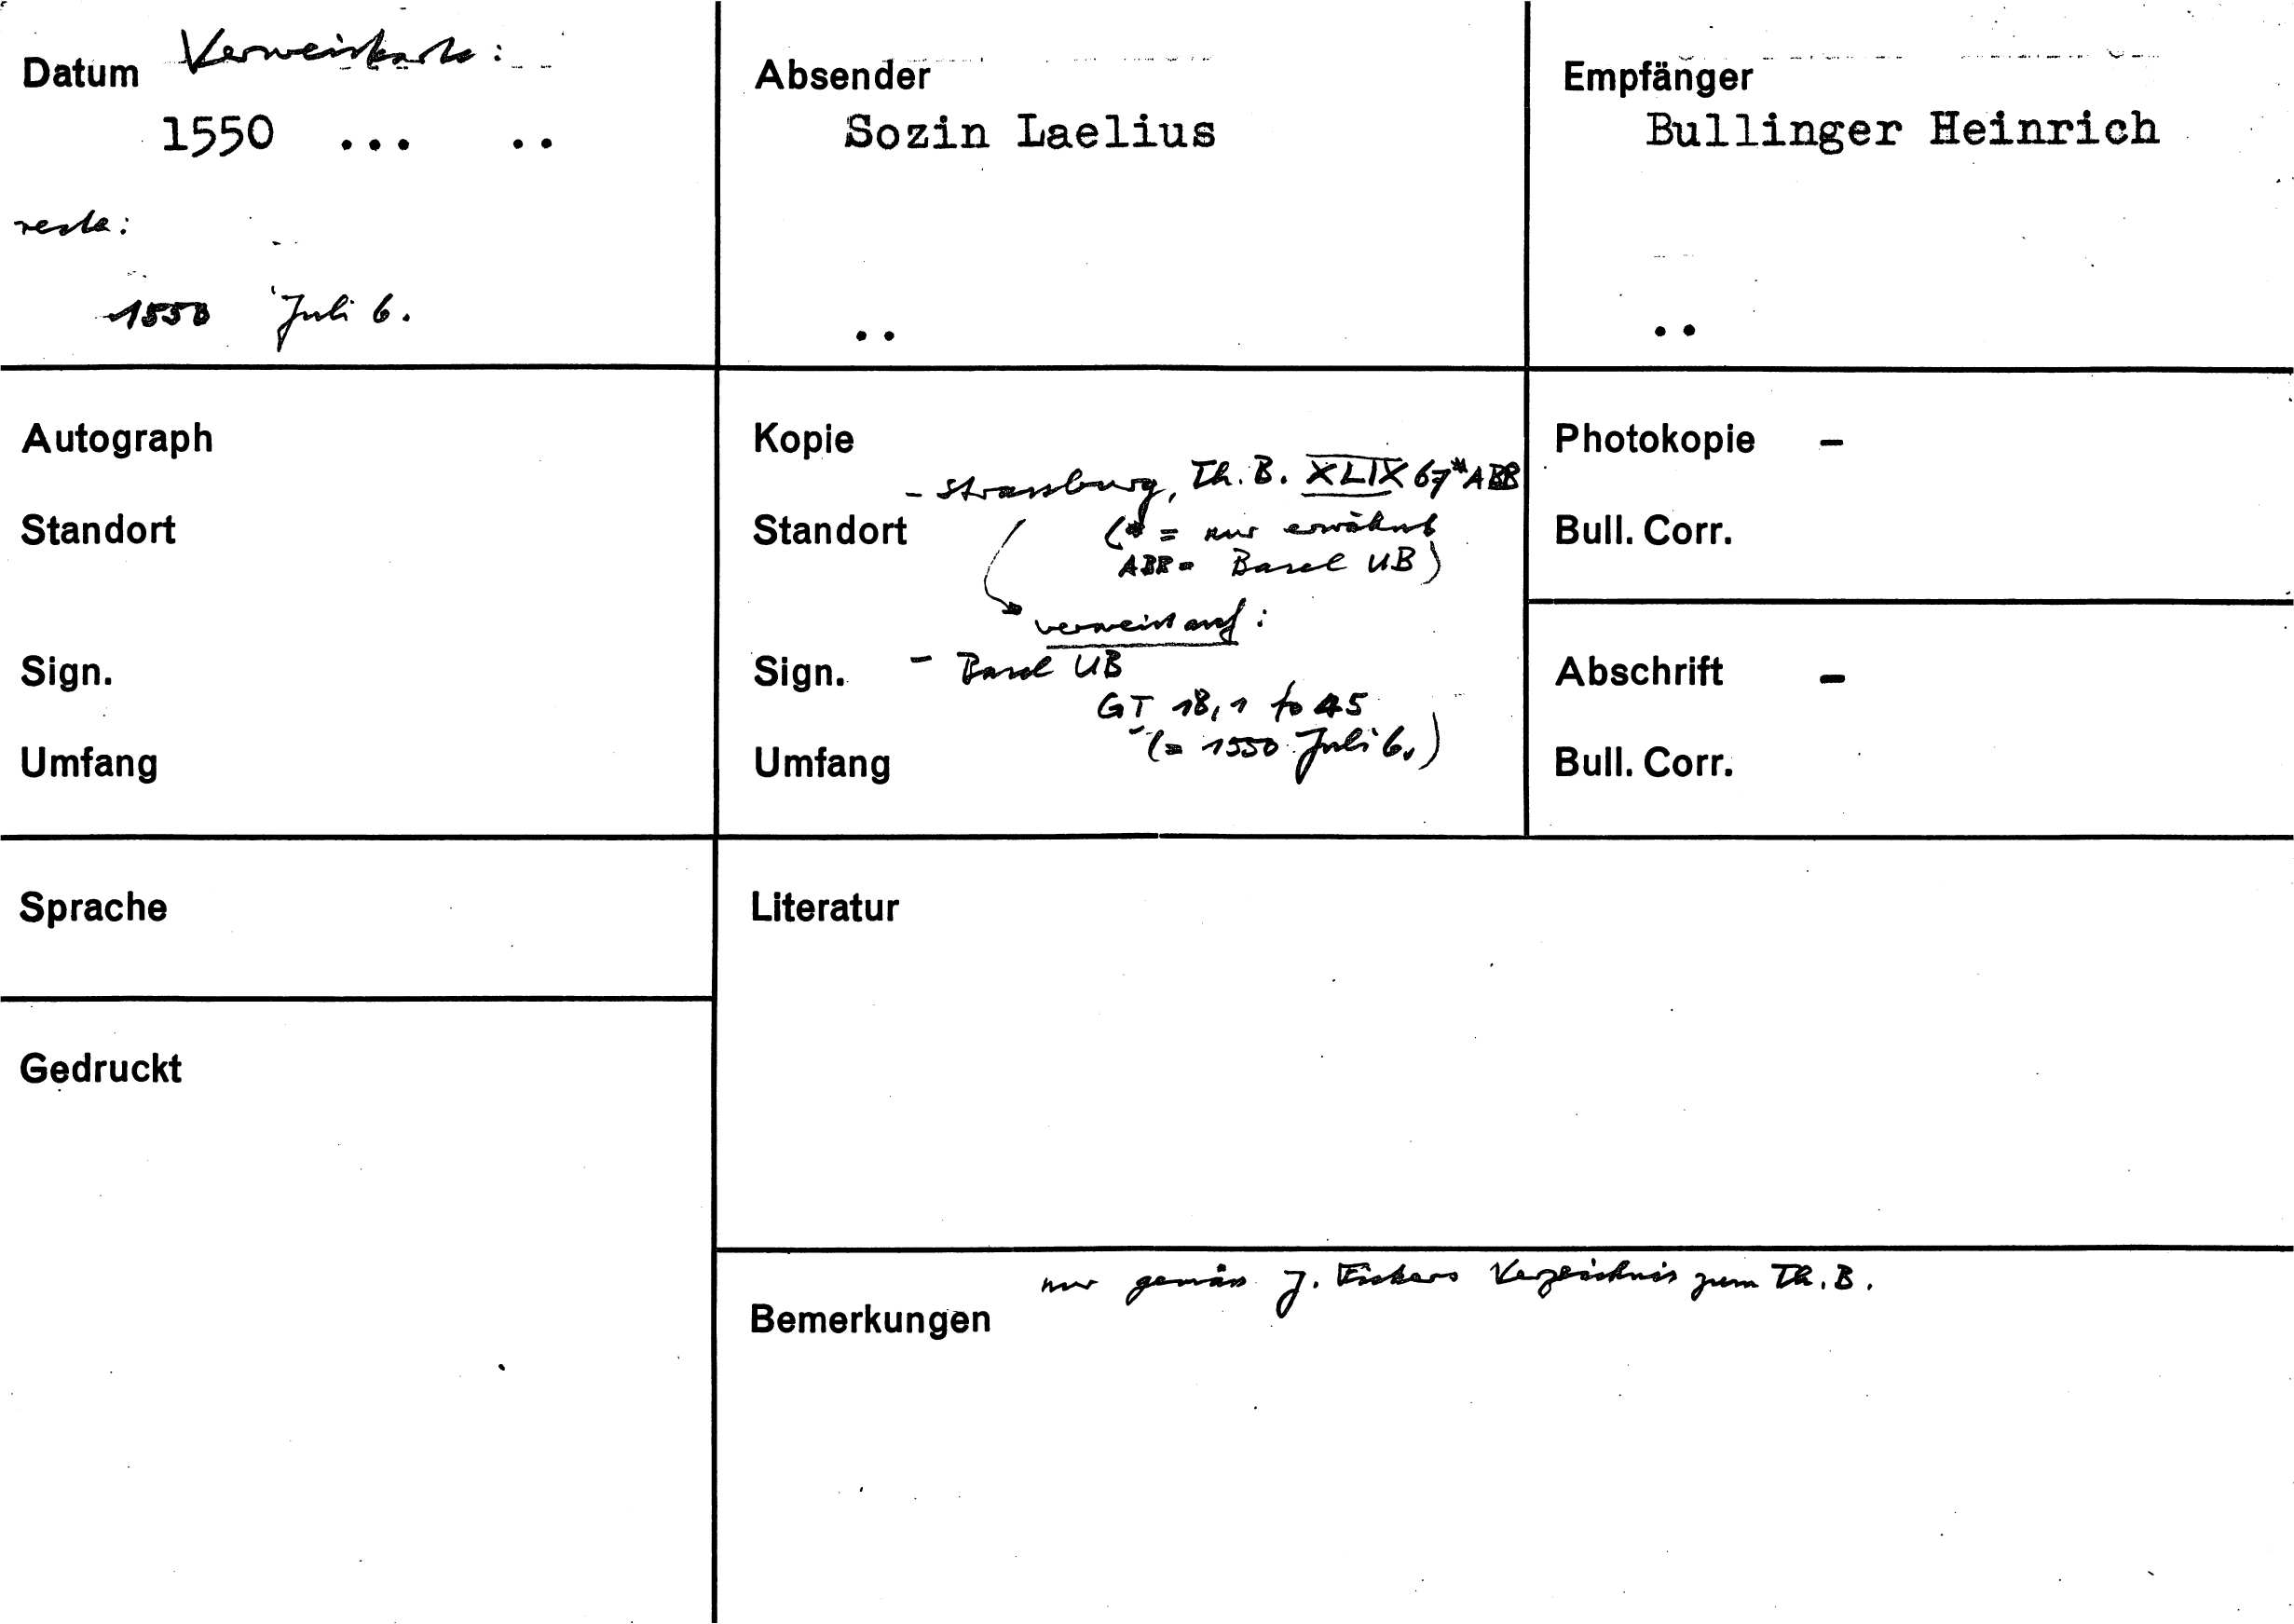 Datum Verweiskarte:
1550 ... ..
recte:
1550 Juli 6.
Absender
Sozin Laelius
..
Empfänger
Bullinger Heinrich
..
Autograph
Standort
Sign.
Umfang
Kopie
- Strassburg, Th. B. XLIX 67* ABB
Standort (* = nur erwähnt
ABB = Basel UB)
verweist auf:
Sign. - Basel UB
GT 18,1 fo 45
(= 1550 Juli 6.)
Umfang
Photokopie –
Bull. Corr.
Abschrift –
Bull. Corr.
Sprache
Gedruckt
Literatur
nur gemäss J. Fickers Verzeichnis zum Th. B.
Bemerkungen